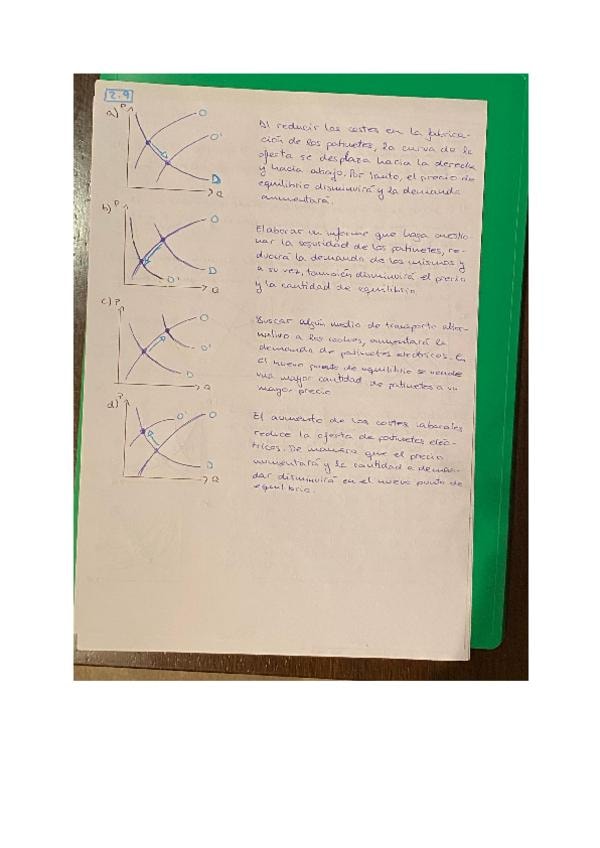 2.9
a) P
O
O'
D
Q
Al reducir los costes en la fabrica-
ción de los patinetes, la curva de la
oferta se desplaza hacia la derecha
y hacia abajo. Por tanto, el precio de
equilibrio disminuirá y la demanda
aumentará.
b) P
O
D
D'
Q
Elaborar un informe que haga cuestio-
nar la seguridad de los patinetes, re-
ducirá la demanda de los mismos y
a su vez, también disminuirá el precio
y la cantidad de equilibrio.
c) P
O
D'
D
Q
Buscar algún medio de transporte alter-
nativo a los coches, aumentará la
demanda de patinetes eléctricos. En
el nuevo punto de equilibrio se vende
una mayor cantidad de patinetes a un
mayor precio
d) P
O'
O
D
Q
El aumento de los costes laborales
reduce la oferta de patinetes eléc-
tricos. De manera que el precio
aumentará y la cantidad a deman-
dar disminuirá en el nuevo punto de
equilibrio.